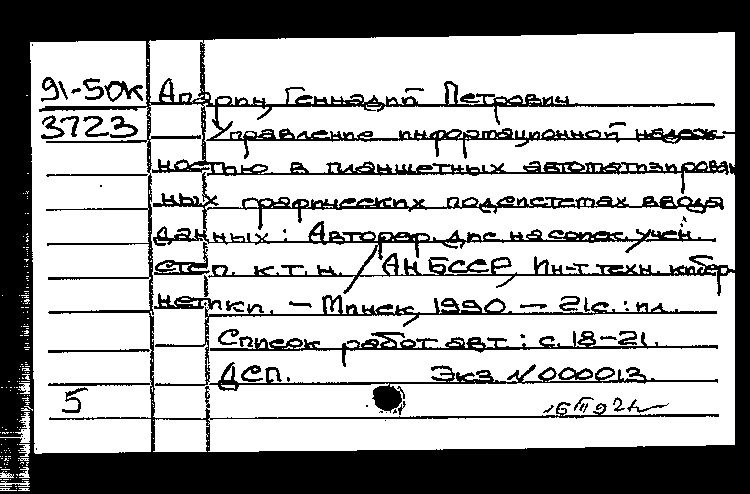 91-50к Апарин, Геннадий Петрович
3723 Управление информационной надеж-
ностью в планшетных автоматизирован
ных графических подсистемах ввода
данных: Автореф. дис. на соиск. учён.
степ. к.т.н. / АН БССР, Ин-т техн. кибер-
нетики. – Минск, 1990. – 21с.: ил.
Список работ авт.: с. 18-21.
ДСП. Экз. №000013.
5 16 III 92г